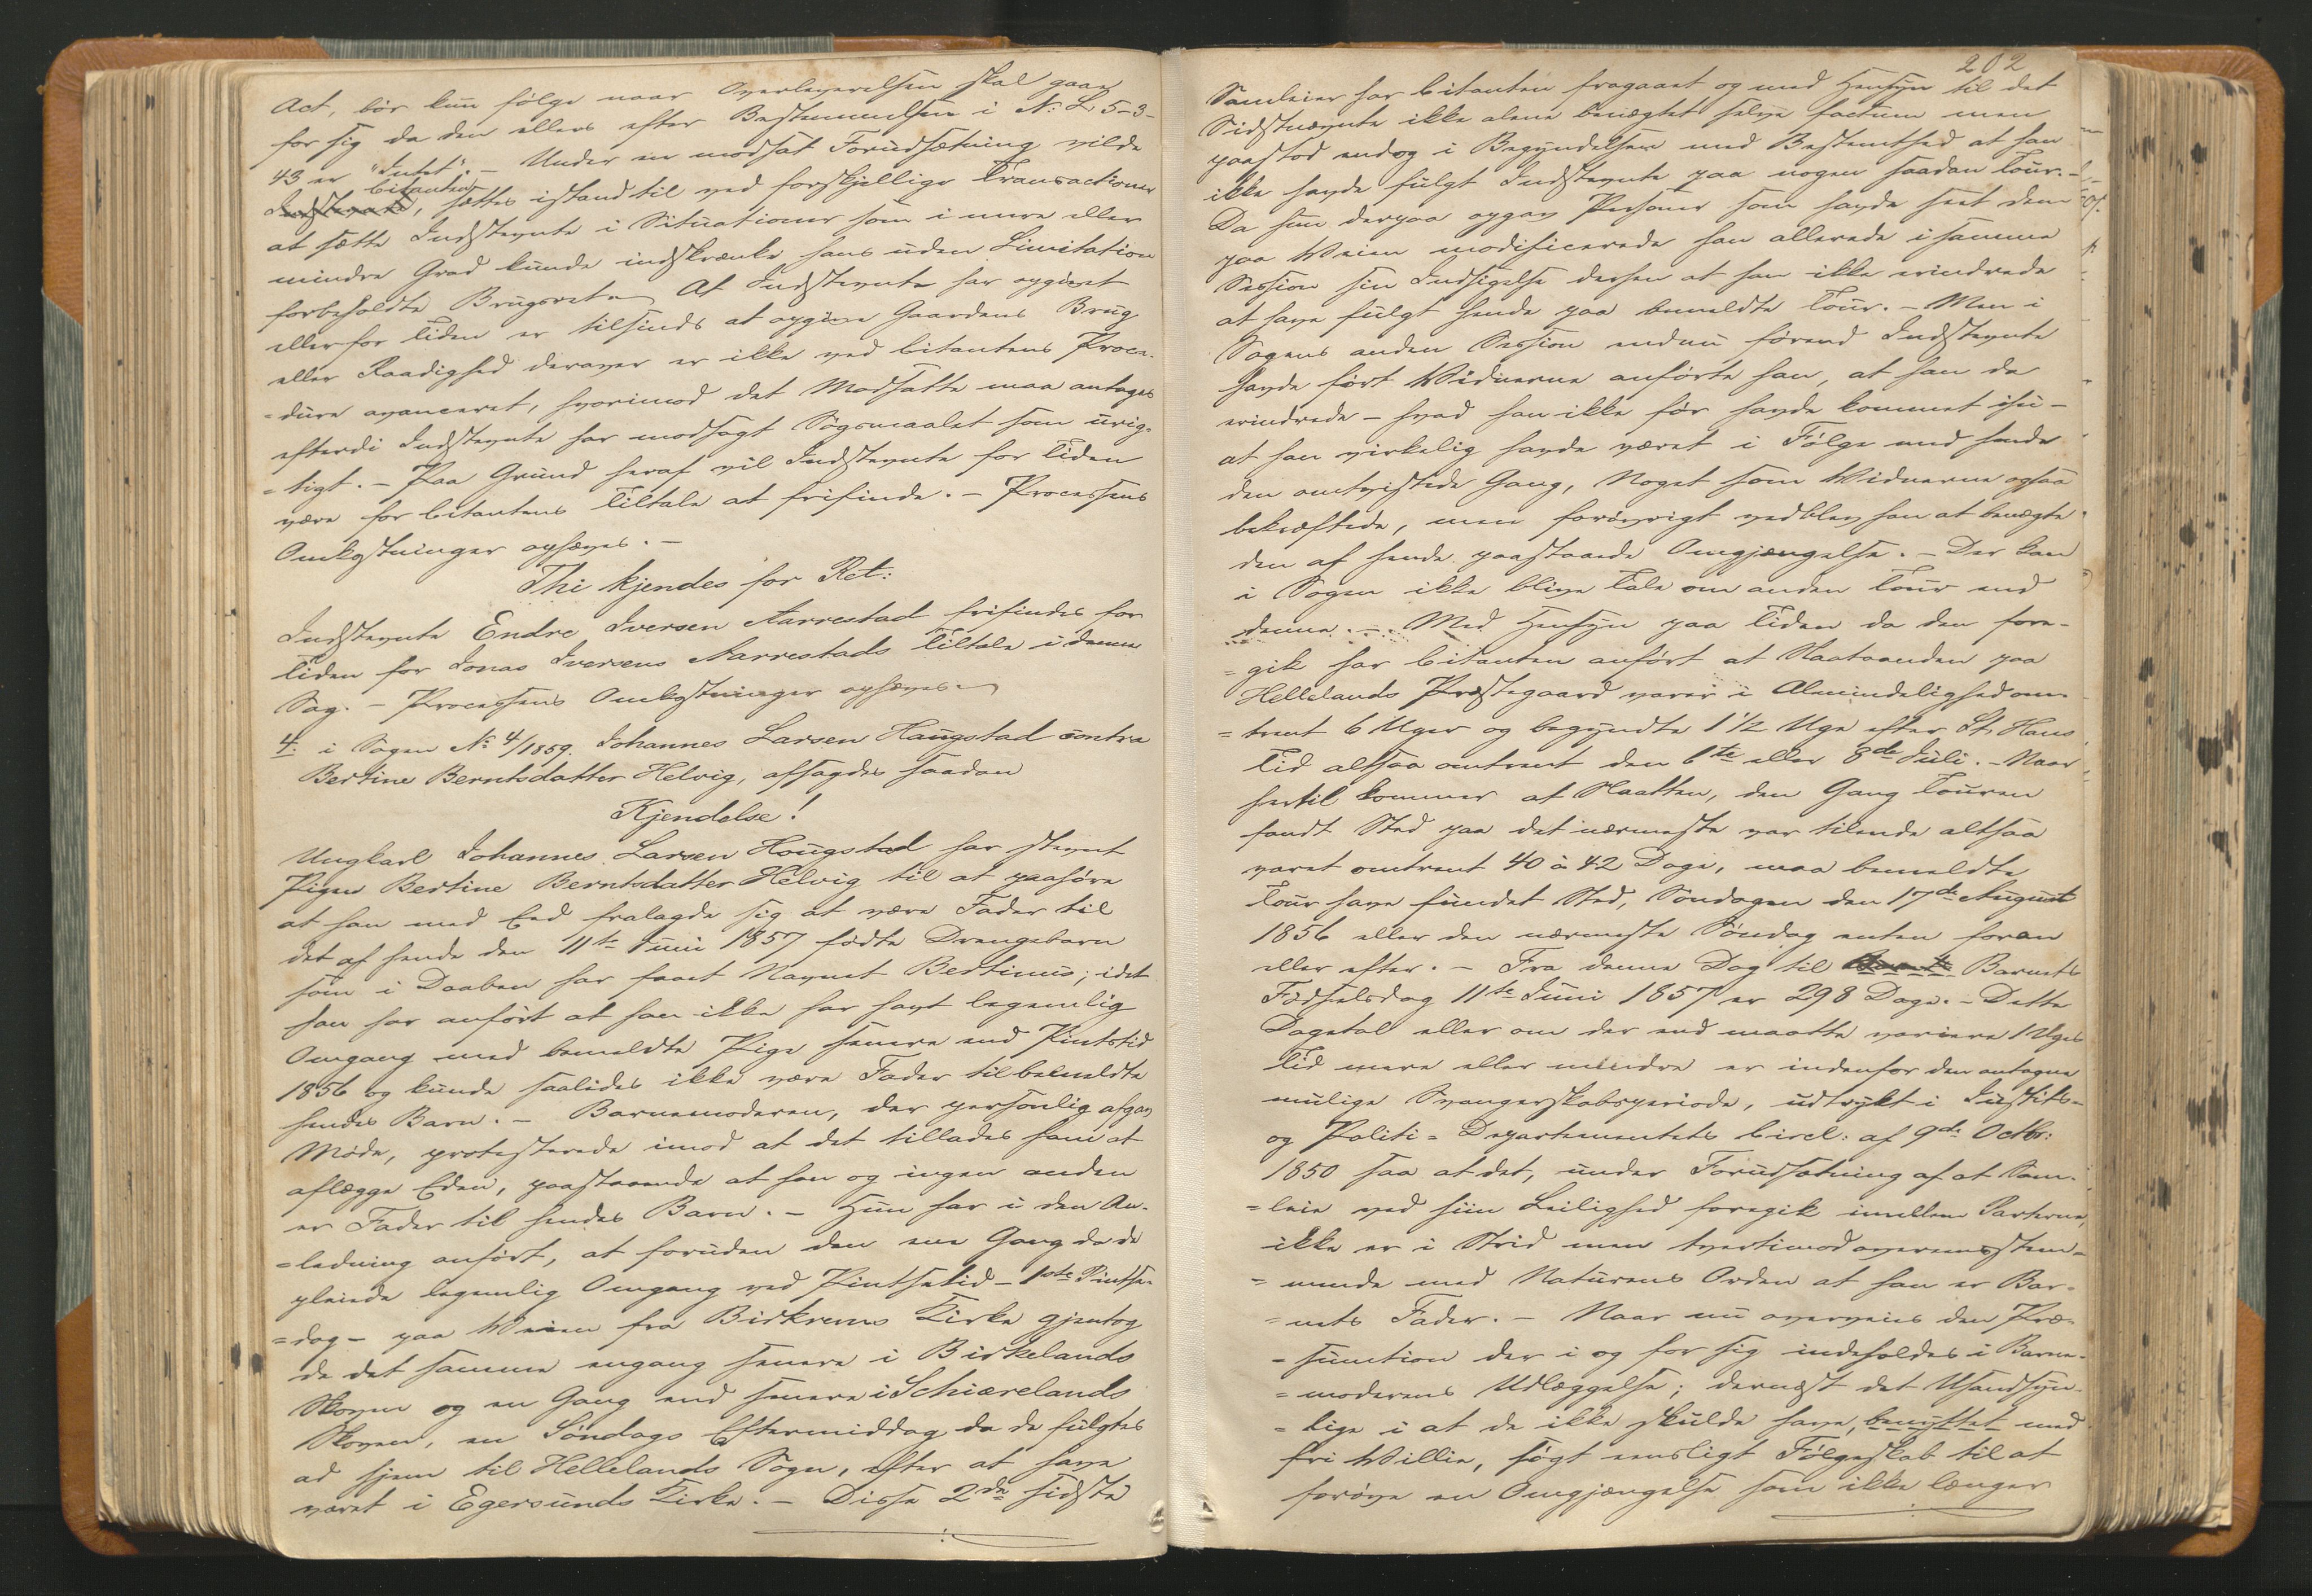 Act, bør kun følge naar Overleverelsen skal gaae
for sig da den ellers efter Bestemmelsen i N: L. 5-3-
43 er "Intet". – Under en modsat Forudsætning vilde
Citanten
Indstevnte, sættes istand til ved forskjellige Transactioner
at sætte Indstevnte i Situationer som i mere eller
mindre Grad kunde indskrænke hans uden Limitation
forbeholdte Brugsret. At Indstevnte har opgivet
eller for Tiden er tilsinds at opgive Gaardens Brug
eller Raadighed derover er ikke ved Citantens Proce-
=dure avanceret, hvorimod det Modsatte maa antages
efterdi Indstevnte har modsagt Søgsmaalet som urig-
=tigt. – Paa Grund heraf vil Indstevnte for Tiden
være for Citantens Tiltale at frifinde. – Processens
Omkostninger ophæves. –
Thi kjendes for Ret:
Indstevnte Endre Iversen Aarrestad frifindes for
Tiden for Jonas Iversens Aarrestads Tiltale i denne
Sag. – Processens Omkostninger ophæves.
4: i Sagen No 4/1859. Johannes Larsen Haugstad contra
Bertine Berntsdatter Helvig, afsagdes saadan
Kjendelse!
Ungkarl Johannes Larsen Hougstad har stevnt
Pigen Bertine Berntsdatter Helvig til at paahøre
at han med Eed fralagde sig at være Fader til
det af hende den 11te Juni 1857 fødte Drengebarn
som i Daaben har faaet Navnet Bertinus; idet
han har anført at han ikke har havt legemlig
Omgang med bemeldte Pige senere end Pintstid
1856 og kunde saaledes ikke være Fader til bemeldte
hendes Barn. – Barnemoderen, der personlig afgav
Møde, protesterede imod at det tillades ham at
aflægge Eden, paastaaende at han og ingen anden
er Fader til hendes Barn. – Hun har i den An-
=ledning anført, at foruden den ene Gang da de
pleiede legemlig Omgang ved Pintsetid – 1ste Pintse-
=dag – paa Veien fra Birkrems Kirke gjentog
de det samme engang senere i Birkelands
Skoven og en Gang end senere i Schiærelands
Skoven, en Søndags Eftermiddag da de fulgtes
ad hjem til Hellelands Sogn, efter at have
været i Egersunds Kirke. – Disse 2de sidste
202
Samleier har Citanten fragaaet og med Hensyn til det
Sidstnævnte ikke alene benægtet selve factum men
paastod endog i Begyndelsen med Bestemthed at han
ikke havde fulgt Indstevnte paa nogen saadan Tour. –
Da hun derpaa opgav Personer som havde seet dem
paa Veien modificerede han allerede i samme
Session sin Indsigelse derhen at han ikke erindrede
at have fulgt hende paa bemeldte Tour. – Men i
Sagens anden Session endnu førend Indstevnte
havde ført Vidnerne anførte han, at han da
erindrede – hvad han ikke før havde kommet ihu –
at han virkelig havde været i Følge med hende
den omtvistede Gang, Noget som Vidnerne ogsaa
bekræftede, men forøvrigt vedblev han at benægte
den af hende paastaaede Omgjængelse. – Der kan
i Sagen ikke blive Tale om anden Tour end
denne. – Med Hensyn paa Tiden da den fore-
=gik har Citanten anført at Slaataanden paa
Hellelands Præstegaard varer i Almindelighed om-
=trent 6 Uger og begyndte 1 1/2 Uge efter St. Hans
Tid altsaa omtrent den 6te eller 8de Juli. – Naar
hertil kommer at Slaatten, den Gang Touren
fandt Sted paa det nærmeste var tilende altsaa
varet omtrent 40 à 42 Dage, maa bemeldte
Tour have fundet Sted, Søndagen den 17de August
1856 eller den nærmeste Søndag enten foran
eller efter. – Fra denne Dag til Barnets
Fødselsdag 11te Juni 1857 er 298 Dage. – Dette
Dagetal eller om der end maatte variere 1 Uges
Tid mere eller mindre er indenfor den antagne
mulige Svangerskabsperiode, udtrykt i Justits-
og Politi-Departementets Circl: af 9de Octbr:
1850 saa at det, under Forudsætning af at Sam-
=leie ved hiin Leilighed foregik imellem Parterne,
ikke er i Strid men tvertimod overensstem-
=mende med Naturens Orden at han er Bar-
=nets Fader. – Naar nu overveies den Præ-
=sumtion der i og for sig indeholdes i Barne-
=moderens Udlæggelse; dernæst det Usandsyn-
=lige i at de ikke skulde have, benyttet med
fri Villie, søgt eensligt Følgeskab til at
forøve en Omgjængelse som ikke længer